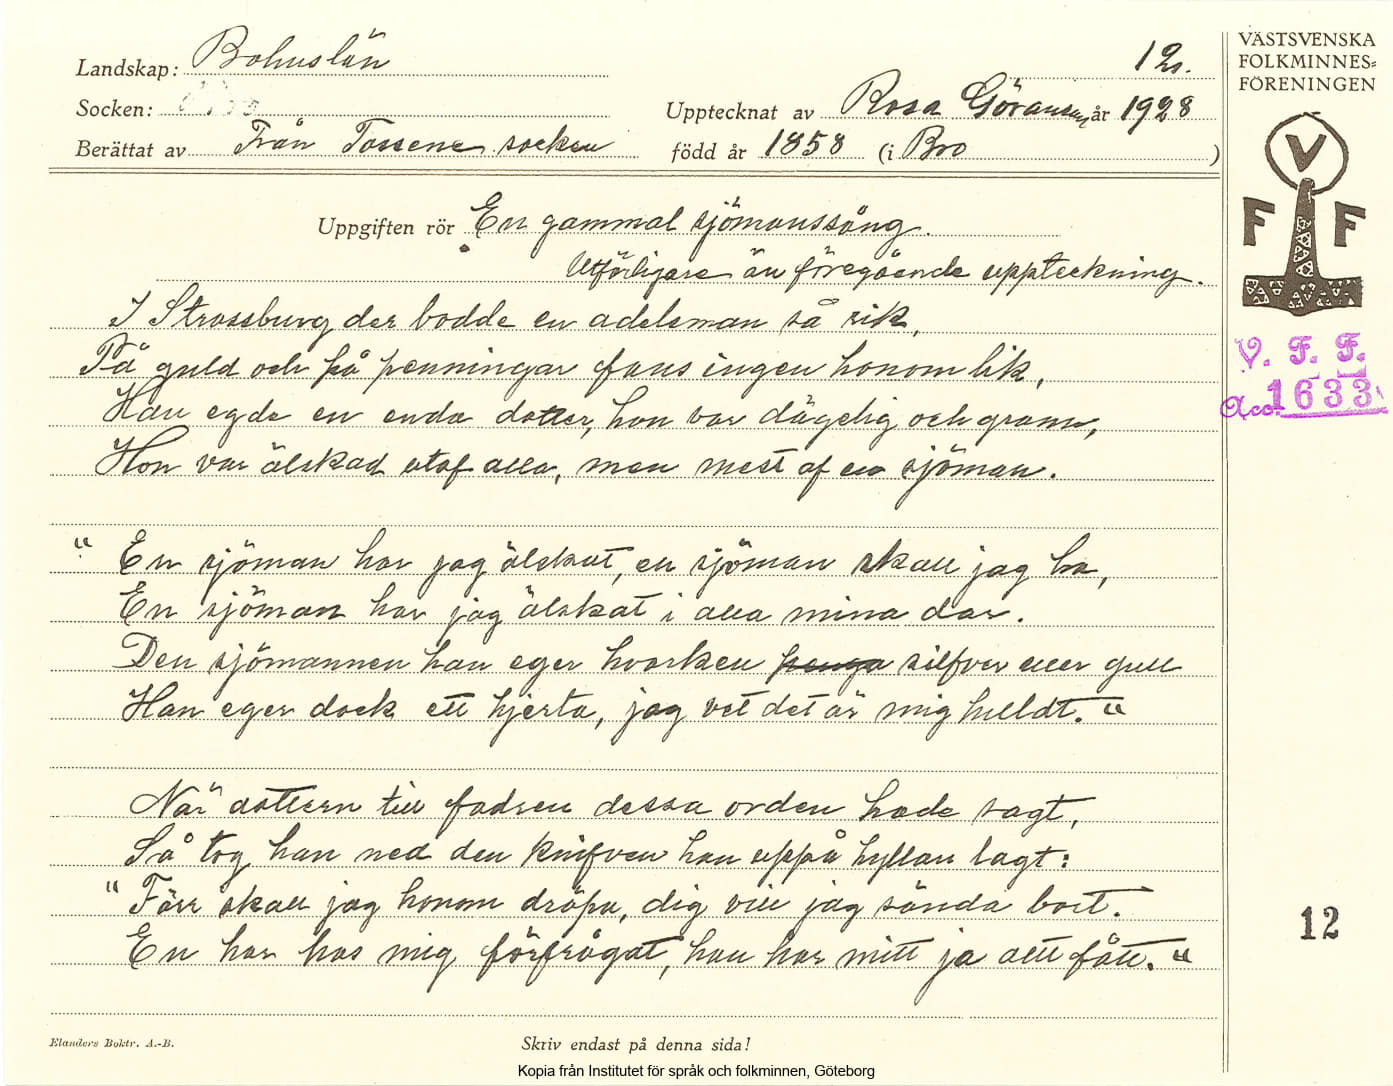 Landskap: Bohuslän
12.
VÄSTSVENSKA
FOLKMINNES=
FÖRENINGEN
Socken:
Upptecknat av Rosa Göransson år 1928
Berättat av Från Tossene socken
född år 1858 (i Bro )
V
F F
Uppgiften rör En gammal sjömanssång.
Utförligare än föregående uppteckning.
V. F. F.
Acc. 1633
I Strassburg der bodde en adelsman så rik,
På guld och på penningar fans ingen honom lik,
Han egde en enda dotter, hon var dägelig och grann,
Hon var älskad utaf alla, men mest af en sjöman.
" En sjöman har jag älskat, en sjöman skall jag ha,
En sjöman har jag älskat i alla mina dar.
Den sjömannen han eger hvarken penga silfver eller gull
Han eger dock ett hjerta, jag vet det är mig hulldt. "
När dottern till fadren dessa orden hade sagt,
Så tog han ned den knifven han uppå hyllan lagt:
" Förr skall jag honom dräpa, dig vill jag sända bort.
12
En har hos mig förfrågat, han har mitt ja allt fått. "
Elanders Boktr. A.-B.
Skriv endast på denna sida!
Kopia från Institutet för språk och folkminnen, Göteborg